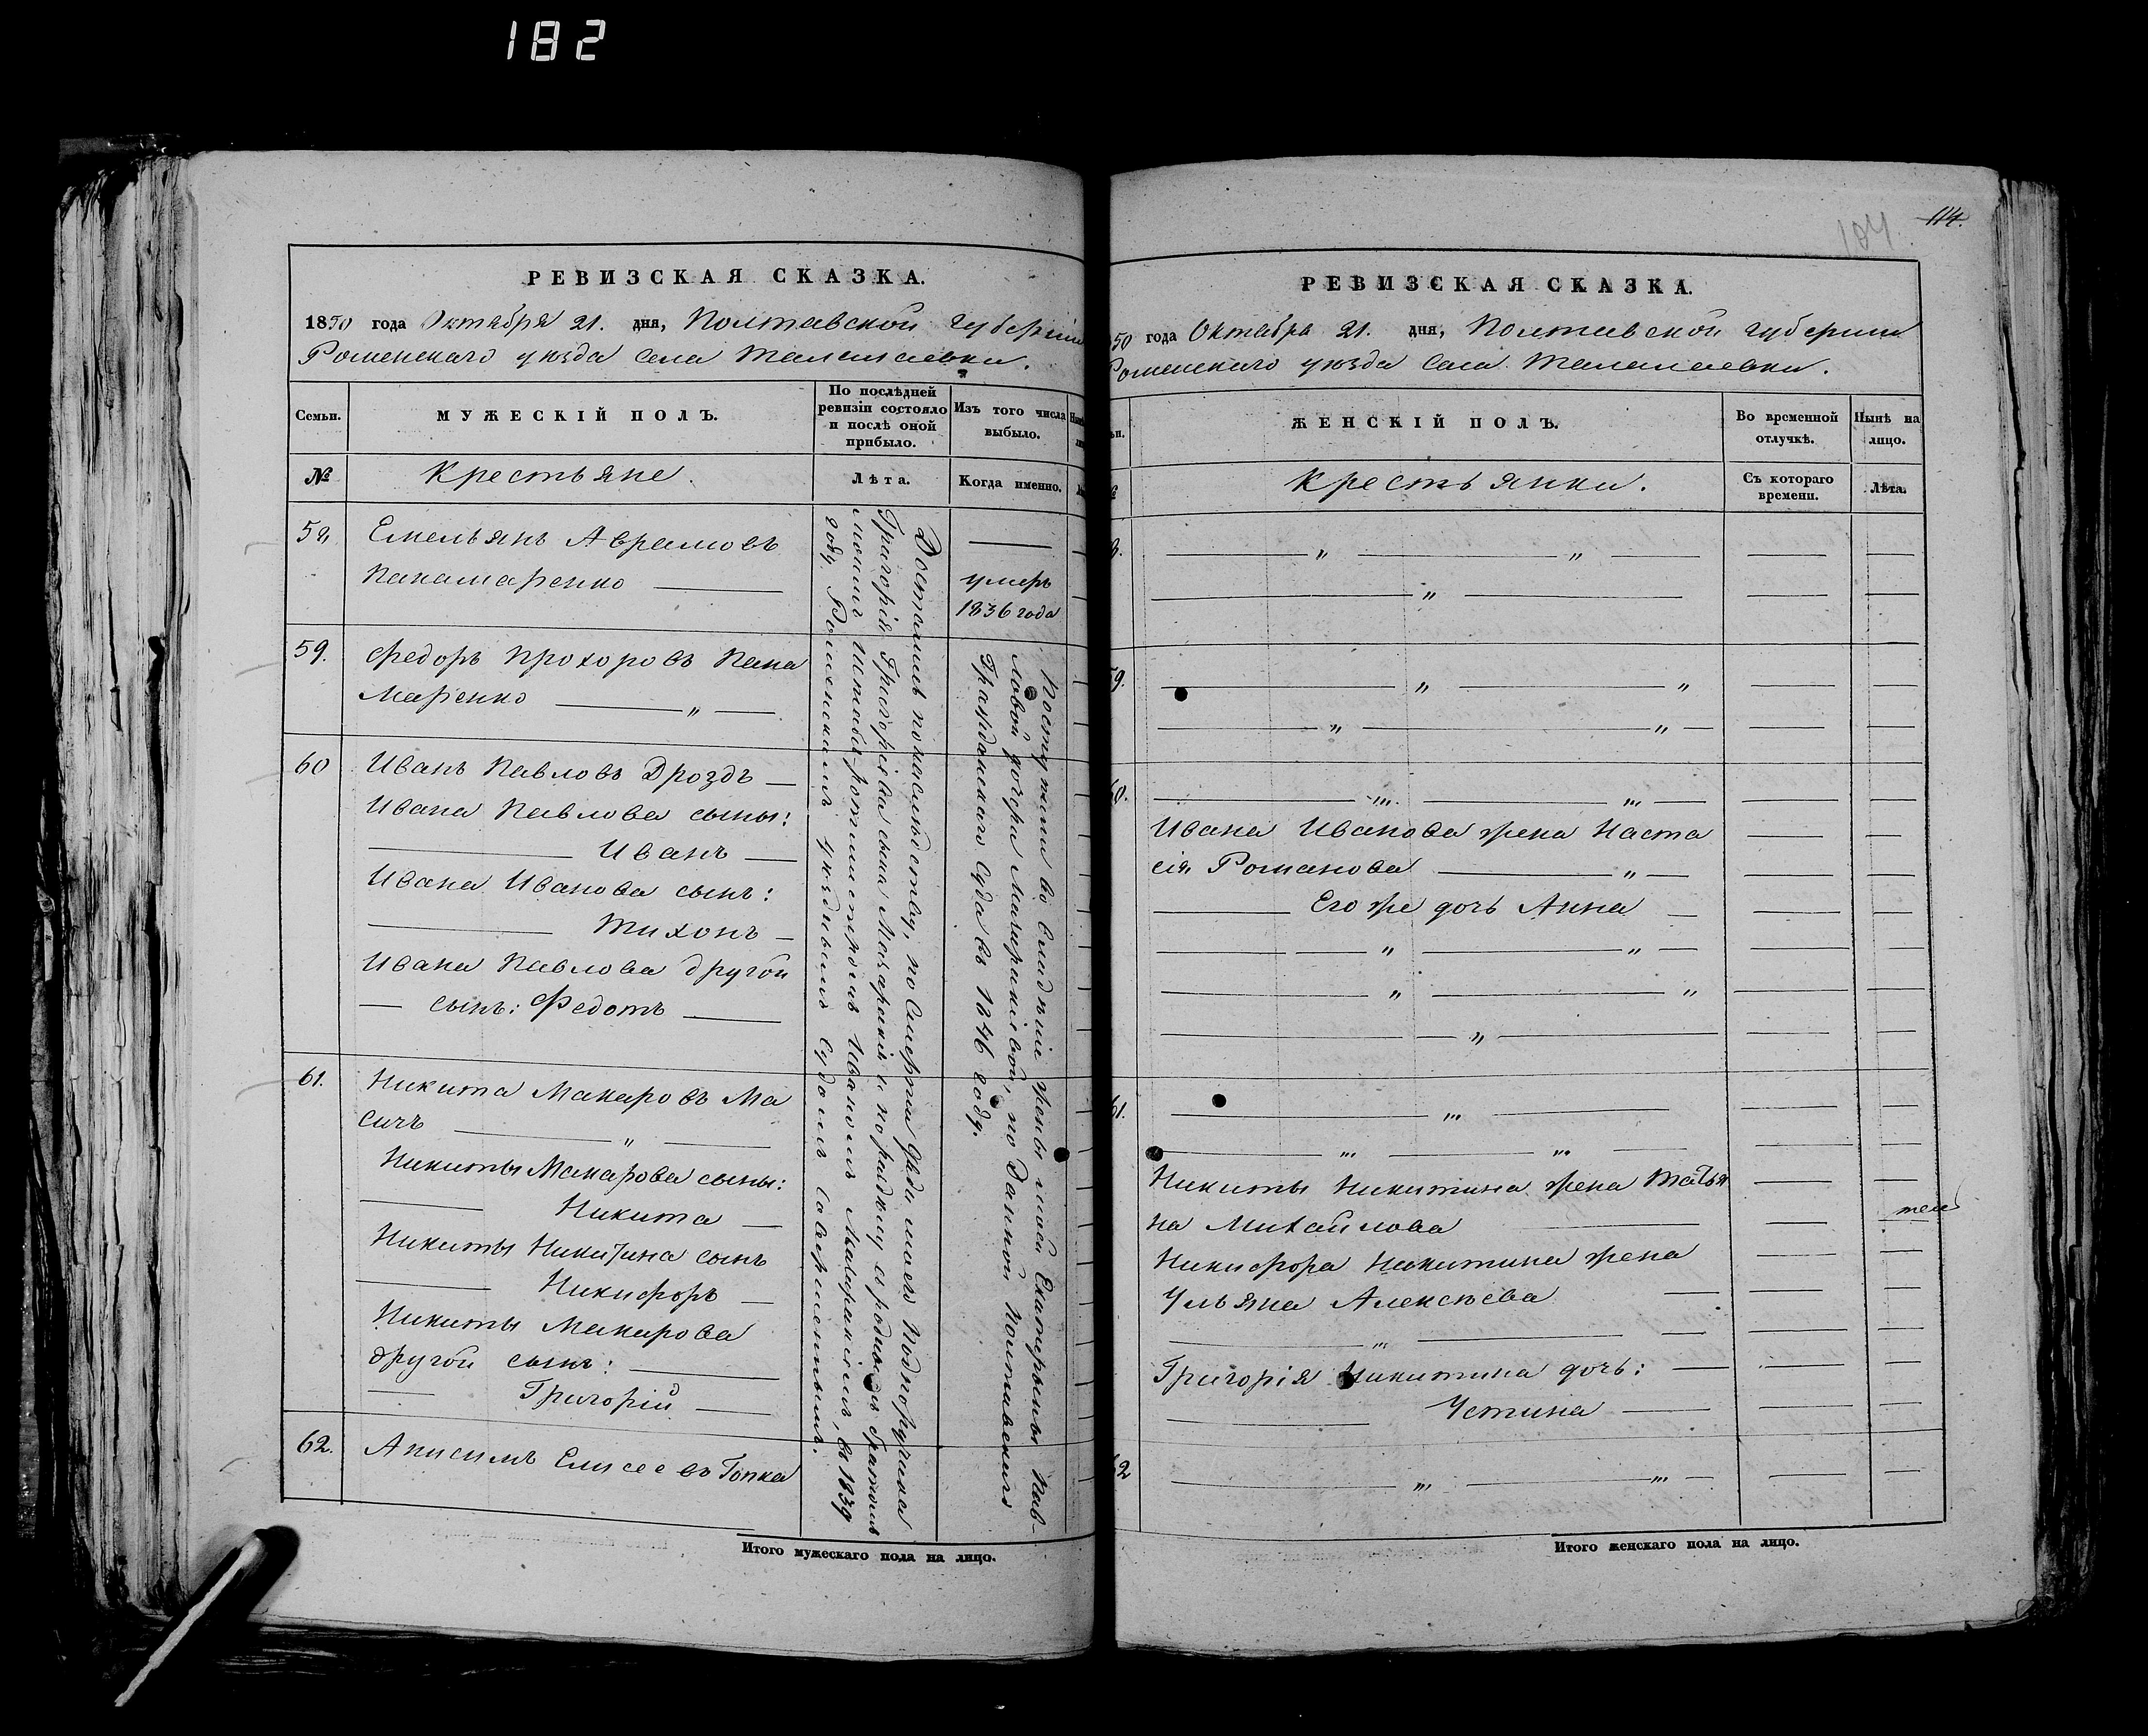 182
РЕВИЗСКАЯ СКАЗКА.
1850 года Октября 21. дня, Полтавской губерніи
Роменскаго уѣзда села Талалаевки.
Семьи.
МУЖЕСКІЙ ПОЛЪ.
По послѣдней
ревизіи состояло
и послѣ оной
прибыло.
Изъ того числа
выбыло.
№
Крестьяне.
Лѣта.
Когда именно.
58
Емельянъ Аврамовъ
Панамаренко
умеръ
1836 года
59.
Федоръ Прохоровъ Пана
маренко
60
Иванъ Павловъ Дроздъ
Ивана Павлова сыны:
Иванъ
Ивана Иванова сынъ:
Тихонъ
Ивана Павлова другой
сынъ: Федотъ
61.
Никита Макаровъ Ма
сичъ
Никиты Макарова сыны:
Никита
Никиты Никитина сынъ
Никифоръ
Никиты Макарова
другой сынъ:
Григорій
62.
Анисимъ Елисеевъ Гопка
Достались по наслѣдству, по смерти дѣда моего Подпоручика
Григорія Григорьева сына Магеракія и по раздѣлу съ роднымъ братомъ
моимъ Штабъ-ротмистромъ Иваномъ Магеракіемъ, въ 1839
году Роменскимъ уѣзднымъ Судомъ совершеннымъ.
Поступили во владѣніе жены моей Екатерины Пав-
ловой дочери Магеракіевой, по данной Полтавскаго
Гражданскаго Суда въ 1846 году.
Итого мужескаго пола на лицо.
104
114.
РЕВИЗСКАЯ СКАЗКА.
50 года Октября 21. дня, Полтавской губерніи
Роменскаго уѣзда села Талалаевки.
ЖЕНСКІЙ ПОЛЪ.
Во временной
отлучкѣ.
Нынѣ на
лицо.
Крестьянки.
Съ котораго
времени.
Лѣта.
8.
59.
60.
Ивана Иванова жена Наста
сія Романова
Его же дочь Анна
61.
Никиты Никитина жена Татья
на Михайлова
Никифора Никитина жена
Ульяна Алексѣева
Григорія Никитина дочь:
Устина
62
Итого женскаго пола на лицо.